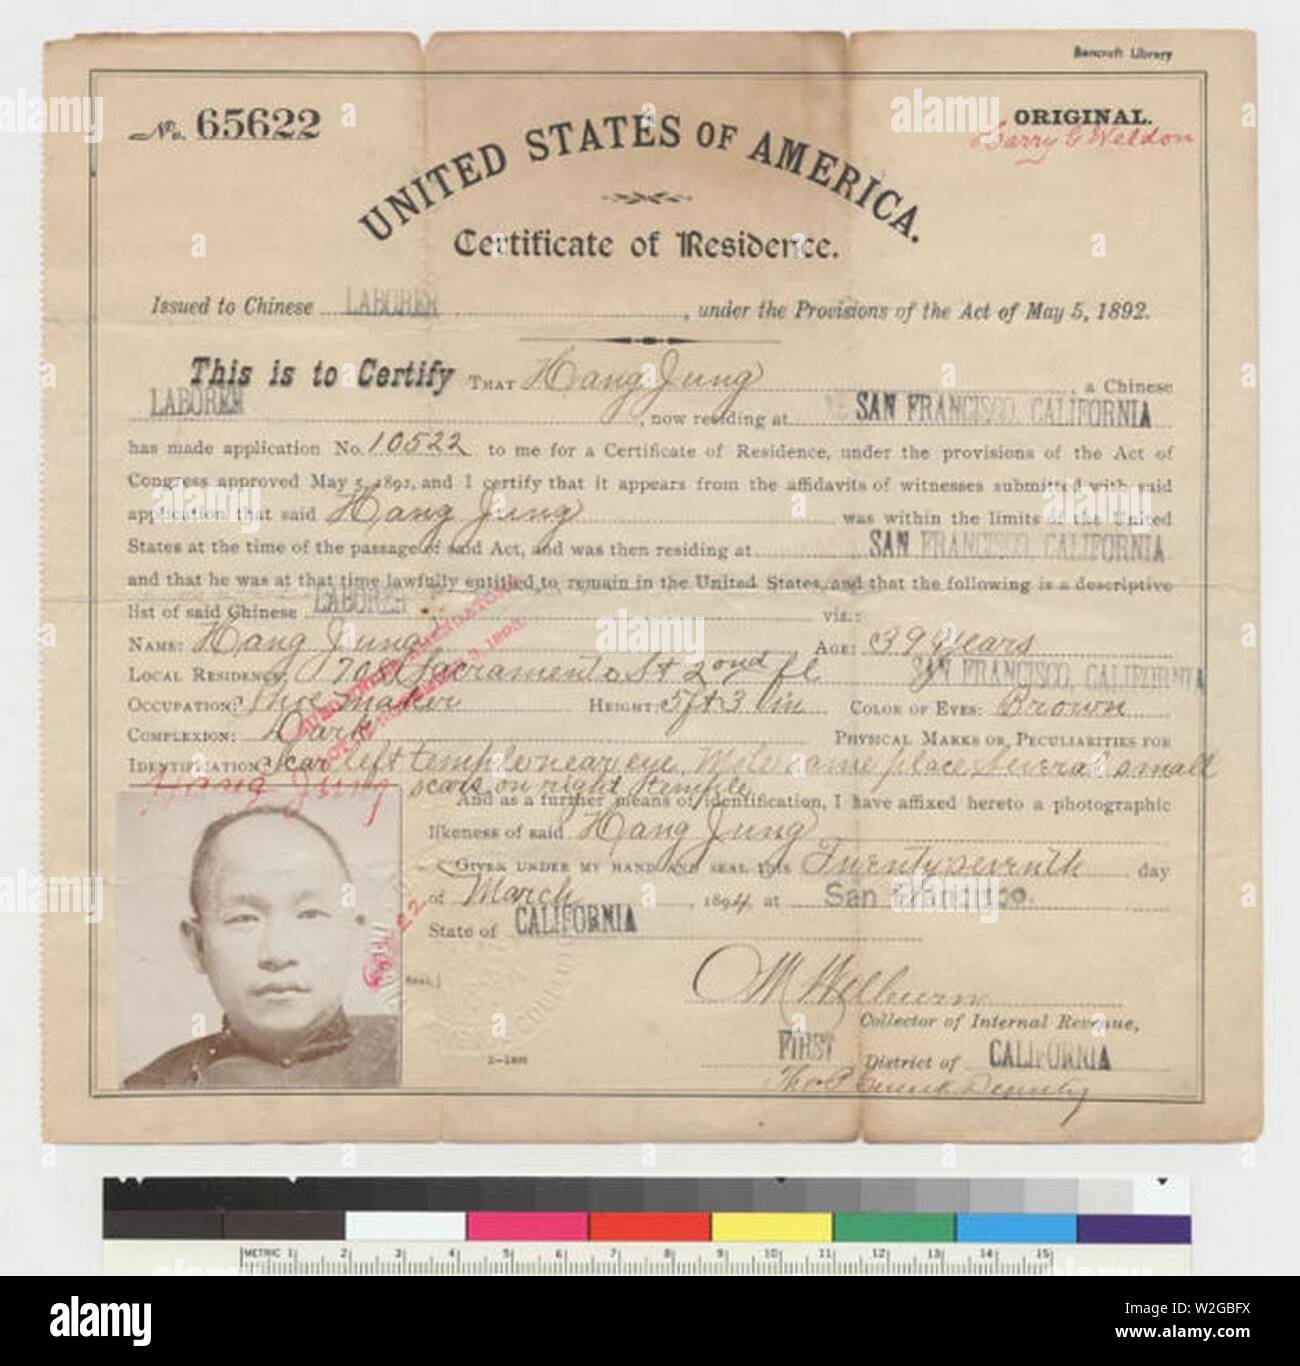 Bancroft Library
No. 65622
ORIGINAL.
Harry G Weldon
UNITED STATES OF AMERICA.
Certificate of Residence.
Issued to Chinese LABORER, under the Provisions of the Act of May 5, 1892.
This is to Certify THAT Hang Jung, a Chinese
LABORER, now residing at SAN FRANCISCO, CALIFORNIA
has made application No. 10522 to me for a Certificate of Residence, under the provisions of the Act of
Congress approved May 5, 1892, and I certify that it appears from the affidavits of witnesses submitted with said
application that said Hang Jung was within the limits of the United
States at the time of the passage of said Act, and was then residing at SAN FRANCISCO, CALIFORNIA
and that he was at that time lawfully entitled to remain in the United States, and that the following is a descriptive
list of said Chinese LABORER viz.:
NAME: Hang Jung AGE: 39 years
LOCAL RESIDENCE: 708 Sacramento St 2nd fl SAN FRANCISCO, CALIFORNIA
OCCUPATION: Shoe maker HEIGHT: 5 ft 3 in COLOR OF EYES: Brown
COMPLEXION: Dark PHYSICAL MARKS OR PECULIARITIES FOR
IDENTIFICATION: Scar left temple near eye. Mole same place several small
scars on right temple
Hang Jung
And as a further means of identification, I have affixed hereto a photographic
likeness of said Hang Jung
GIVEN UNDER MY HAND AND SEAL THIS Twenty seventh day
of March, 1894, at San Francisco.
State of CALIFORNIA
(Seal.)
O M Welburn
Collector of Internal Revenue,
FIRST District of CALIFORNIA
Deputy
2-1898
METRIC 1 2 3 4 5 6 7 8 9 10 11 12 13 14 15
a alamy
alamy
Image ID: W2GBFX
www.alamy.com